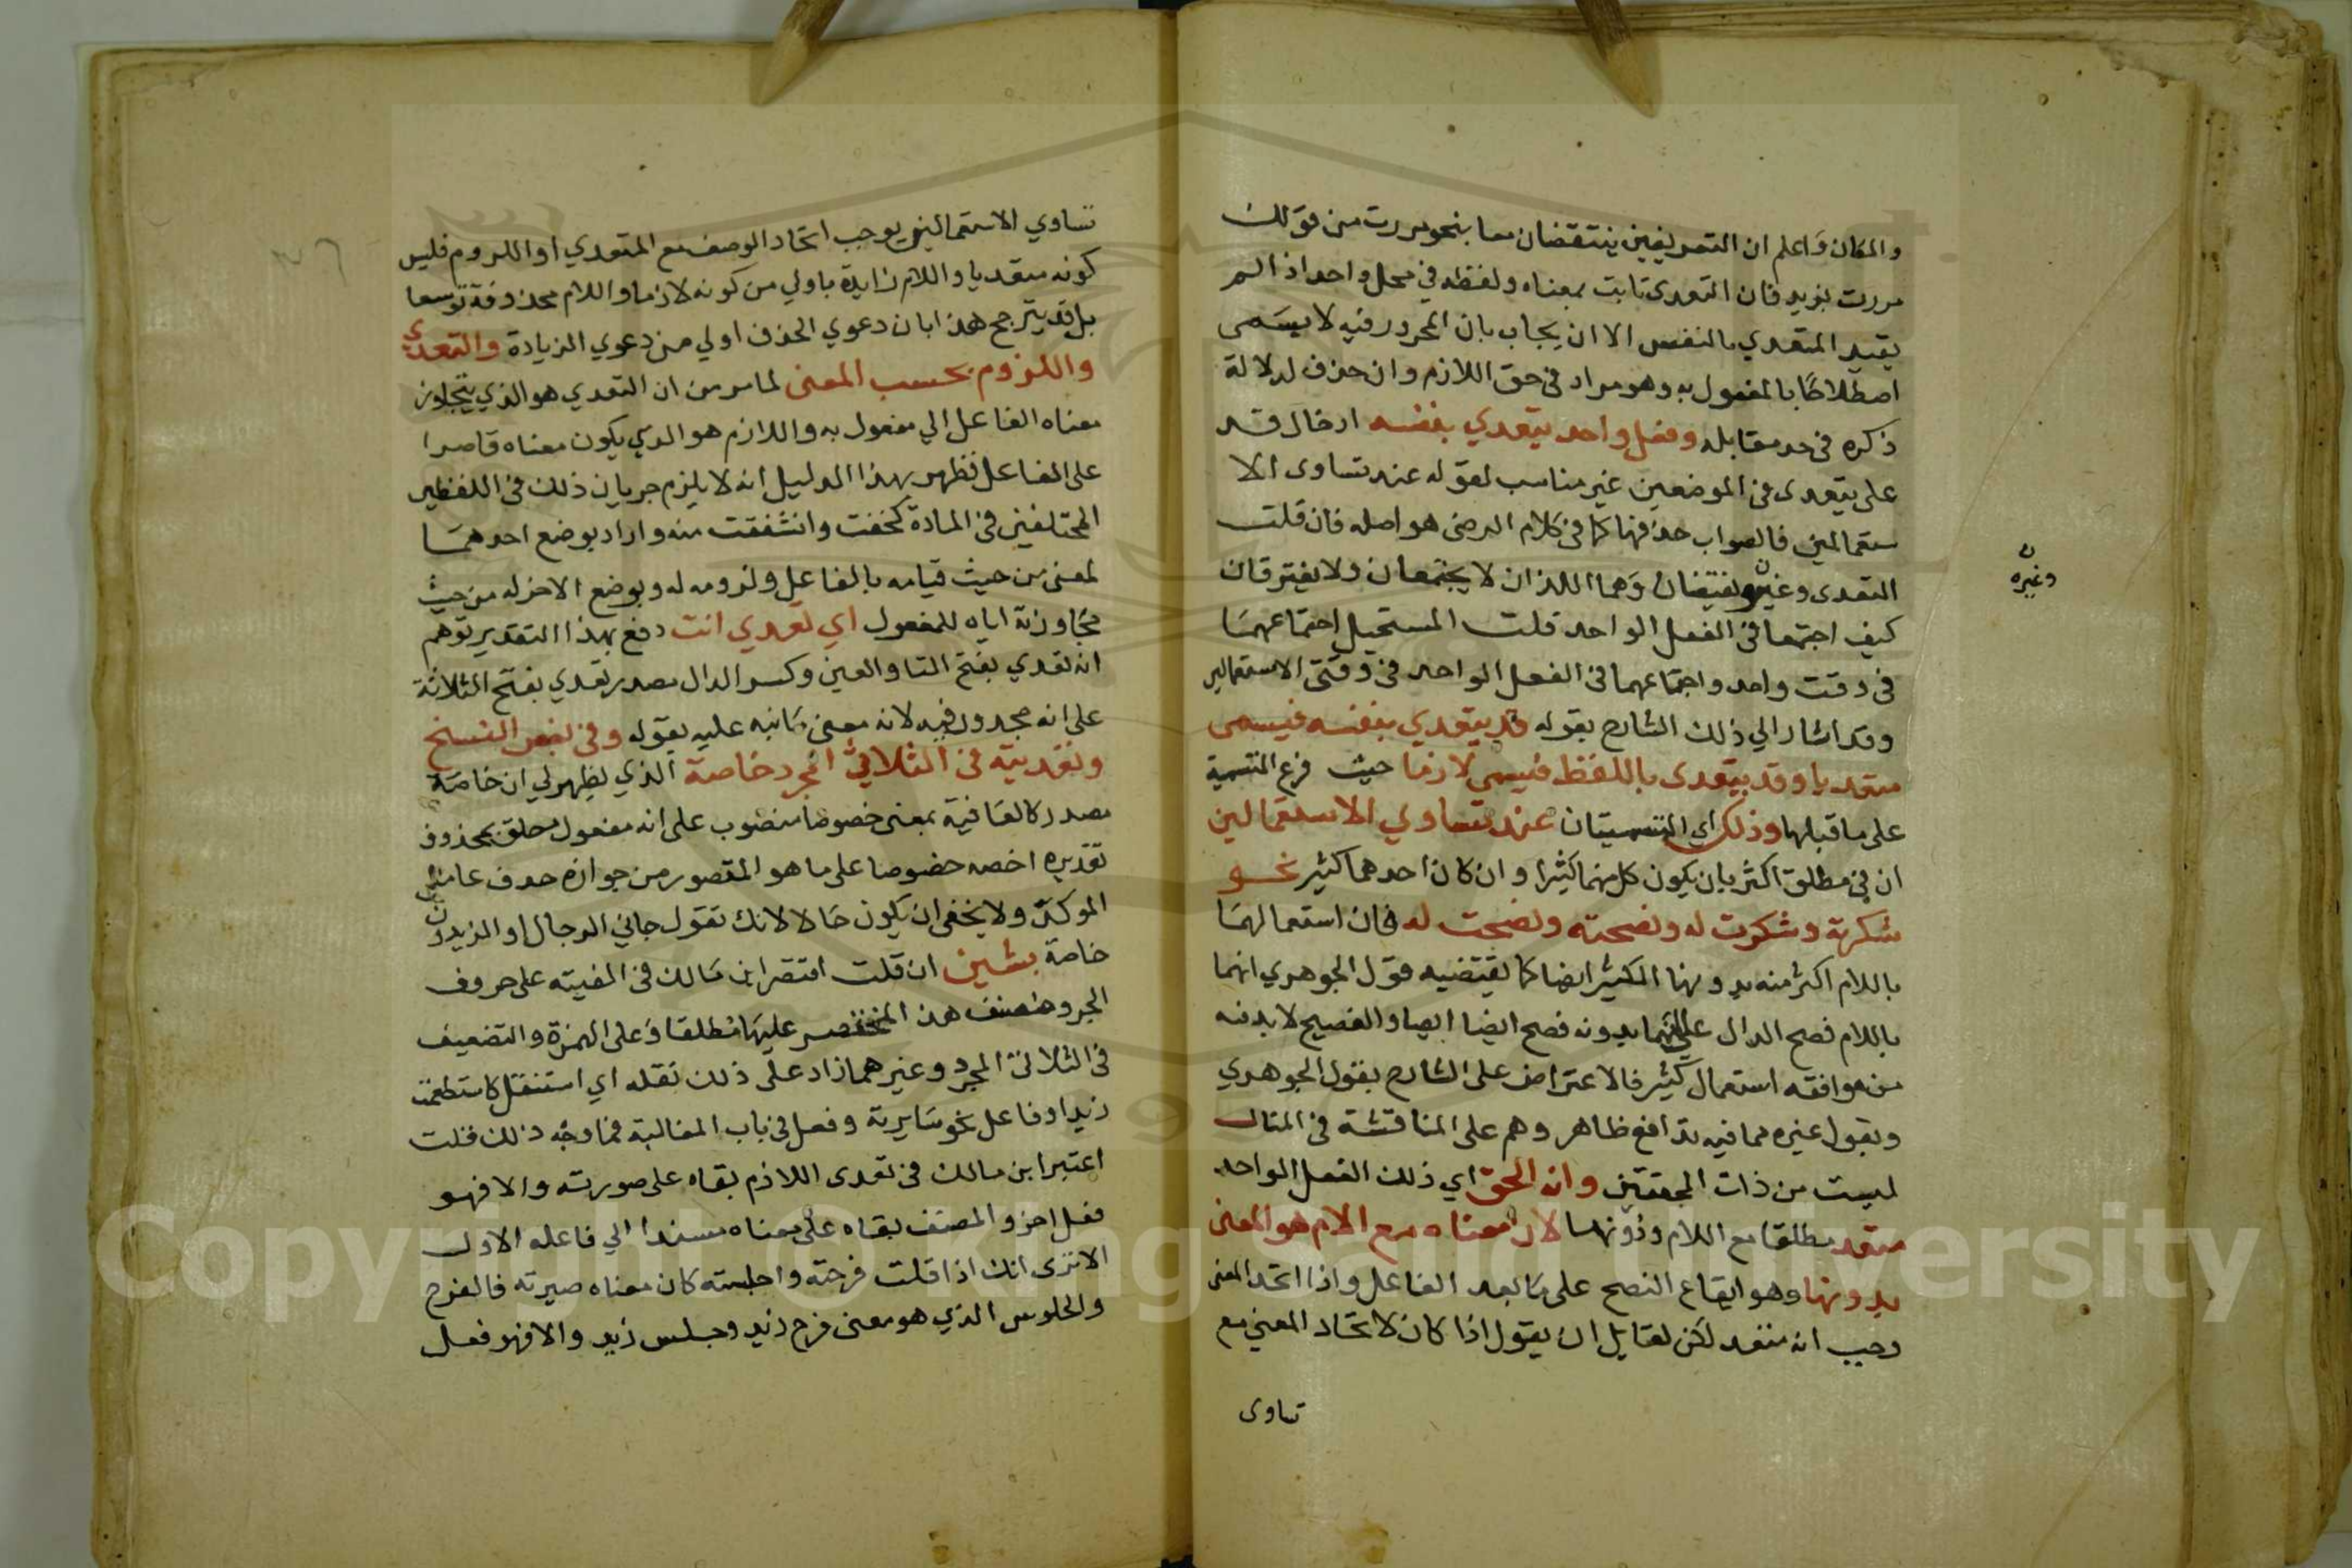 والمكان واعلم ان التعريفين ينتقضان معا بنحو مررت من قولك
مررت بزيد فان التعدى ثابت بمعناه ولفظه في محل واحد اذ الم
يقيد المتعدي بالنفس الا ان يجاب بان المجرور فيه لا يسمى
اصطلاحا بالمفعول به وهو مراد في حق اللازم وان حذف لدلالة
ذكره في حد مقابله وفعل واحد يتعدي بنفسه ادخال قد
على يتعدى في الموضعين غير مناسب لقوله عند تساوى الا
ستعمالين فالصواب حذفها كما في كلام الرضى هو اصله فان قلت
التعدى وغيره نقيضان وهما اللذان لا يجتمعان ولا يفترقان
وغيره ن
كيف اجتمعا في الفعل الواحد قلت المستحيل اجتماعهما
في وقت واحد واجتماعهما في الفعل الواحد في وقتى الاستعمالين
وقد اشار الي ذلك الشارح بقوله قد يتعدي بنفسه فيسمى
متعديا وقد يتعدى باللفظ فيسمي لازما حيث فرع التسمية
على ما قبلها وذلك اي التسميتان عند تساوي الاستعمالين
ان في مطلق اكثر بان يكون كل منهما كثيرا وان كان احدهما كثير نحو
شكرته وشكرت له ونصحته ونصحت له فان استعمالهما
باللام اكثر منه بدونها الكثير ايضا كما يقتضيه قول الجوهري انهما
باللام فصح الدال على انهما بدونه فصح ايضا ايضا والفصيح لا بد فيه
من موافقه استعمال كثير فالاعتراض على الشارح بقول الجوهري
وبقول غيره مما فيه تدافع ظاهر وهم على المناقشة في المثال
ليست من ذات المحققين وانه الحق اي ذلك الفعل الواحد
متعد مطلقا مع اللام ودونها لان معناه مع الام هو المعنى
بدونها وهو ايقاع النصح على ما بعد الفاعل واذا اتحد المعنى
وجب انه متعد لكن لقايل ان يقول اذا كان لاتحاد المعني مع
تساوى
تساوي الاستعمالين يوجب اتحاد الوصف مع المتعدي او اللزوم فليس
كونه متعديا واللام زايدة باولي من كونه لازما واللام محذوفة توسعا
بل قد يترجح هذا بان دعوي الحذف اولي من دعوي الزيادة والتعدي
واللزوم بحسب المعنى لما مر من ان التعدي هو الذي يتجاوز
معناه الفاعل الي مفعول به واللازم هو الذي يكون معناه قاصرا
على الفاعل فظهر بهذا الدليل انه لا يلزم جريان ذلك في اللفظين
المختلفين في المادة كخفت وانشفقت منه واراد بوضع احدهما
لمعنى من حيث قيامه بالفاعل ولزومه له وبوضع الاخر له من حيث
مجاوزته اياه للمفعول اي تعدي انت دفع بهذا التقدير توهم
انه تعدي بفتح التا والعين وكسر الدال مصدر تعدي بفتح الثلاثة
على انه مجدود فيه لانه معنى ما نبه عليه بقوله وفي بعض النسخ
وتعديته في الثلاثي المجرد خاصة الذي يظهر لي ان خاصة
مصدر كالعافية بمعنى خصوصا منصوب على انه مفعول مطلق بمحذوف
تقديره اخصه خصوصا على ما هو المقصور من جوازه حذف عامل
الموكد ولا يخفى ان يكون حالا لانك تقول جاني الرجال او الزيدون
خاصة بشين ان قلت اقتصر ابن مالك في الفيته على حروف
الجر ومصنف هذا المختصر عليها مطلقا وعلى الهمزة والتضعيف
في الثلاثي المجرد وغيرهما زاد على ذلك نقله اي استفعل كاستطعمت
زيدا وفاعل نحو سايرته وفعل في باب المغالبة فما وجه ذلك قلت
اعتبر ابن مالك في تعدى اللازم بقاه على صورته والا فهو
فعل اخر والمصنف بقاه على معناه مسندا الي فاعله الاول
الا ترى انك اذا قلت فرحته واجلسته كان معناه صيرته فالفرح
والجلوس الذي هو معنى فرح زيد وجلس زيد والا فهو فعل
Copyright © King Saud University